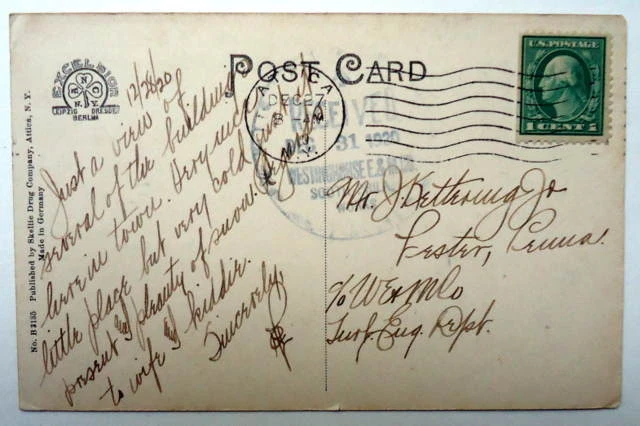 POST CARD
EXCELSIOR
N.Y.
LEIPZIG DRESDEN
BERLIN
No. B3135 Published by Skellie Drug Company, Attica, N. Y.
Made in Germany
12/28/20
Just a view of
several of the buildings
here in town. Very nice
little place but very cold just at
present and plenty of snow. Regards
to wife and kiddie.
Sincerely,
ATTICA
DEC 27
N.Y.
RECEIVED
DEC 31 1920
WESTINGHOUSE E. & M. CO.
U.S. POSTAGE
1 CENT 1
Mr. J. Kettering Jr
Lester, Penna.
c/o W E & M Co
Turb. Eng. Dept.